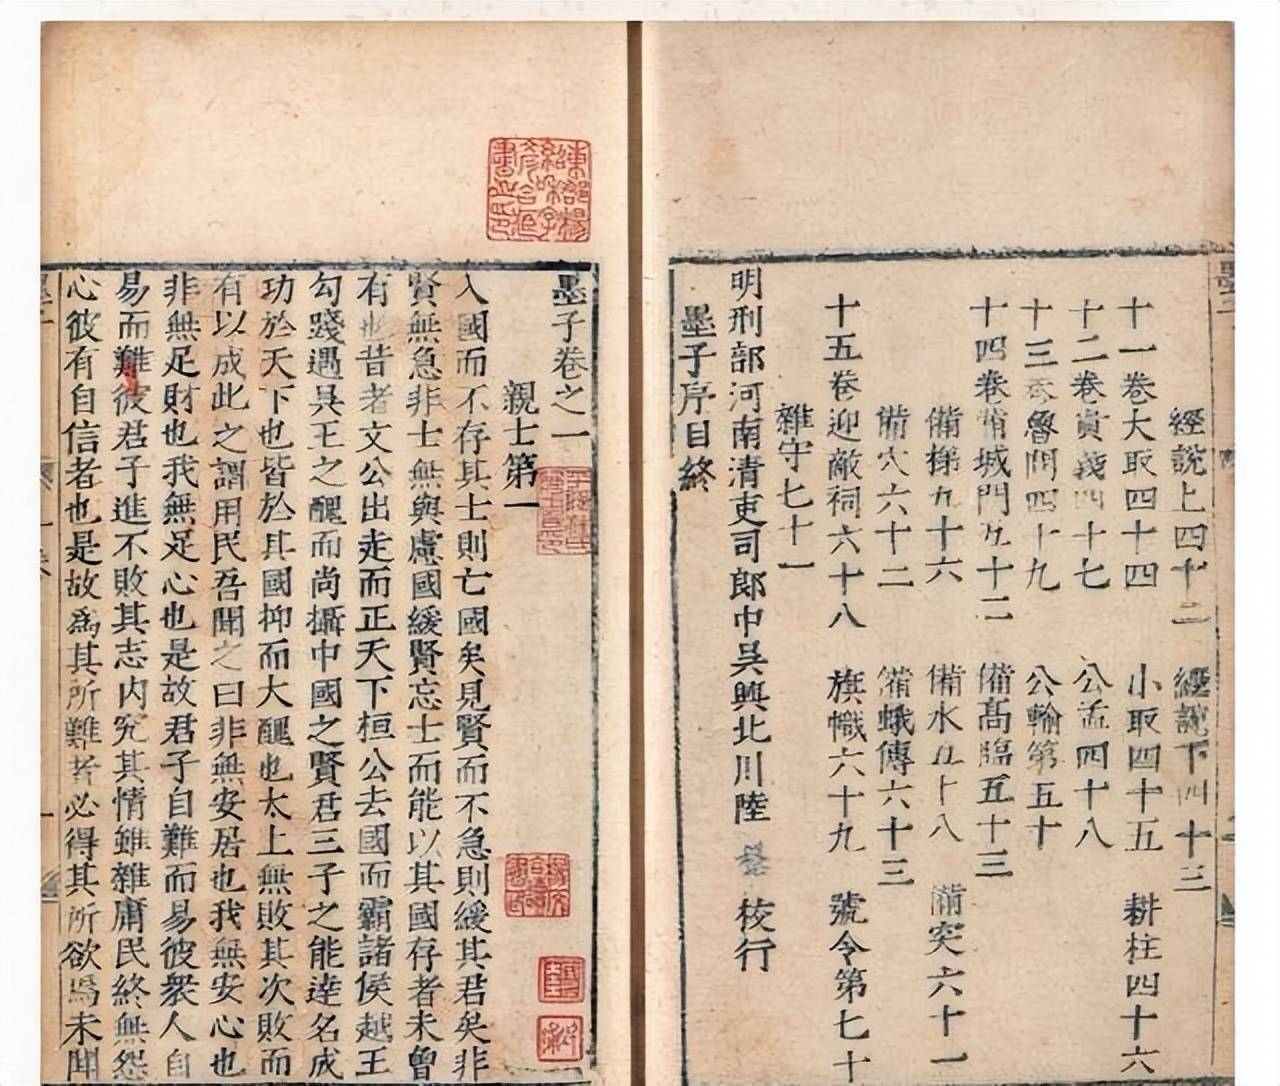 經說上四十二 經說下四十三
十一卷大取四十四 小取四十五 耕柱四十六
十二卷貴義四十七 公孟四十八
十三卷魯問四十九 公輸第五十
十四卷備城門五十二 備高臨五十三
備梯五十六 備水五十八 備突六十一
備穴六十二 備蛾傳六十三
十五卷迎敵祠六十八 旗幟六十九 號令第七十
雜守七十一
明刑部河南清吏司郎中吳興北川陸 校行
墨子序目終
墨子卷之一
親士第一
入國而不存其士則亡國矣見賢而不急則緩其君矣非
賢無急非士無與慮國緩賢忘士而能以其國存者未曾
有也昔者文公出走而正天下桓公去國而霸諸侯越王
勾踐遇吳王之醜而尚攝中國之賢君三子之能達名成
功於天下也皆於其國抑而大醜也太上無敗其次敗而
有以成此之謂用民吾聞之曰非無安居也我無安心也
非無足財也我無足心也是故君子自難而易彼衆人自
易而難彼君子進不敗其志內究其情雖雜庸民終無怨
心彼有自信者也是故爲其所難者必得其所欲焉未聞